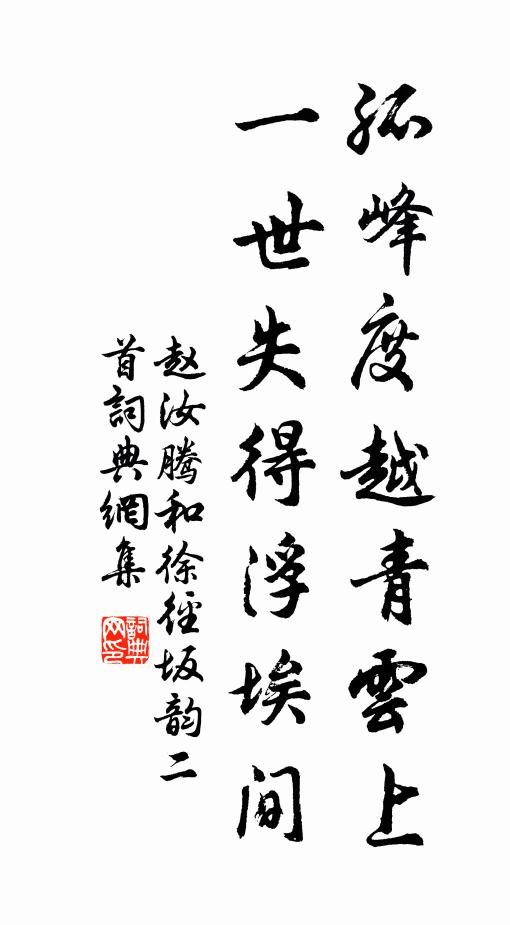 孤峰度越青雲上
一世失得浮埃间
赵汝腾和徐径坂韵二
首詞典網集
詞典
网印